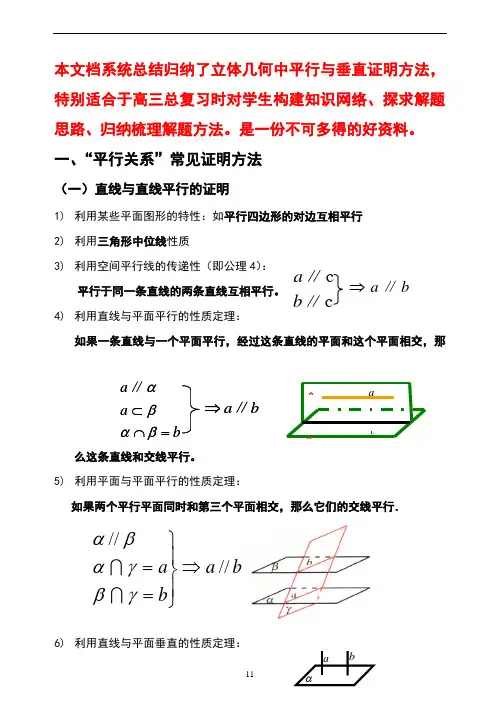 本文档系统总结归纳了立体几何中平行与垂直证明方法，
特别适合于高三总复习时对学生构建知识网络、探求解题
思路、归纳梳理解题方法。是一份不可多得的好资料。
一、“平行关系”常见证明方法
（一）直线与直线平行的证明
1) 利用某些平面图形的特性：如平行四边形的对边互相平行
2) 利用三角形中位线性质
3) 利用空间平行线的传递性（即公理4）：
平行于同一条直线的两条直线互相平行。
a∥c
b∥c
⇒ a∥b
4) 利用直线与平面平行的性质定理：
如果一条直线与一个平面平行，经过这条直线的平面和这个平面相交，那
a∥α
a⊂β
α∩β=b
⇒a∥b
a
b
么这条直线和交线平行。
5) 利用平面与平面平行的性质定理：
如果两个平行平面同时和第三个平面相交，那么它们的交线平行.
α//β
α∩γ=a
β∩γ=b
⇒a//b
β b
α a
γ
6) 利用直线与平面垂直的性质定理：
a b
α
11